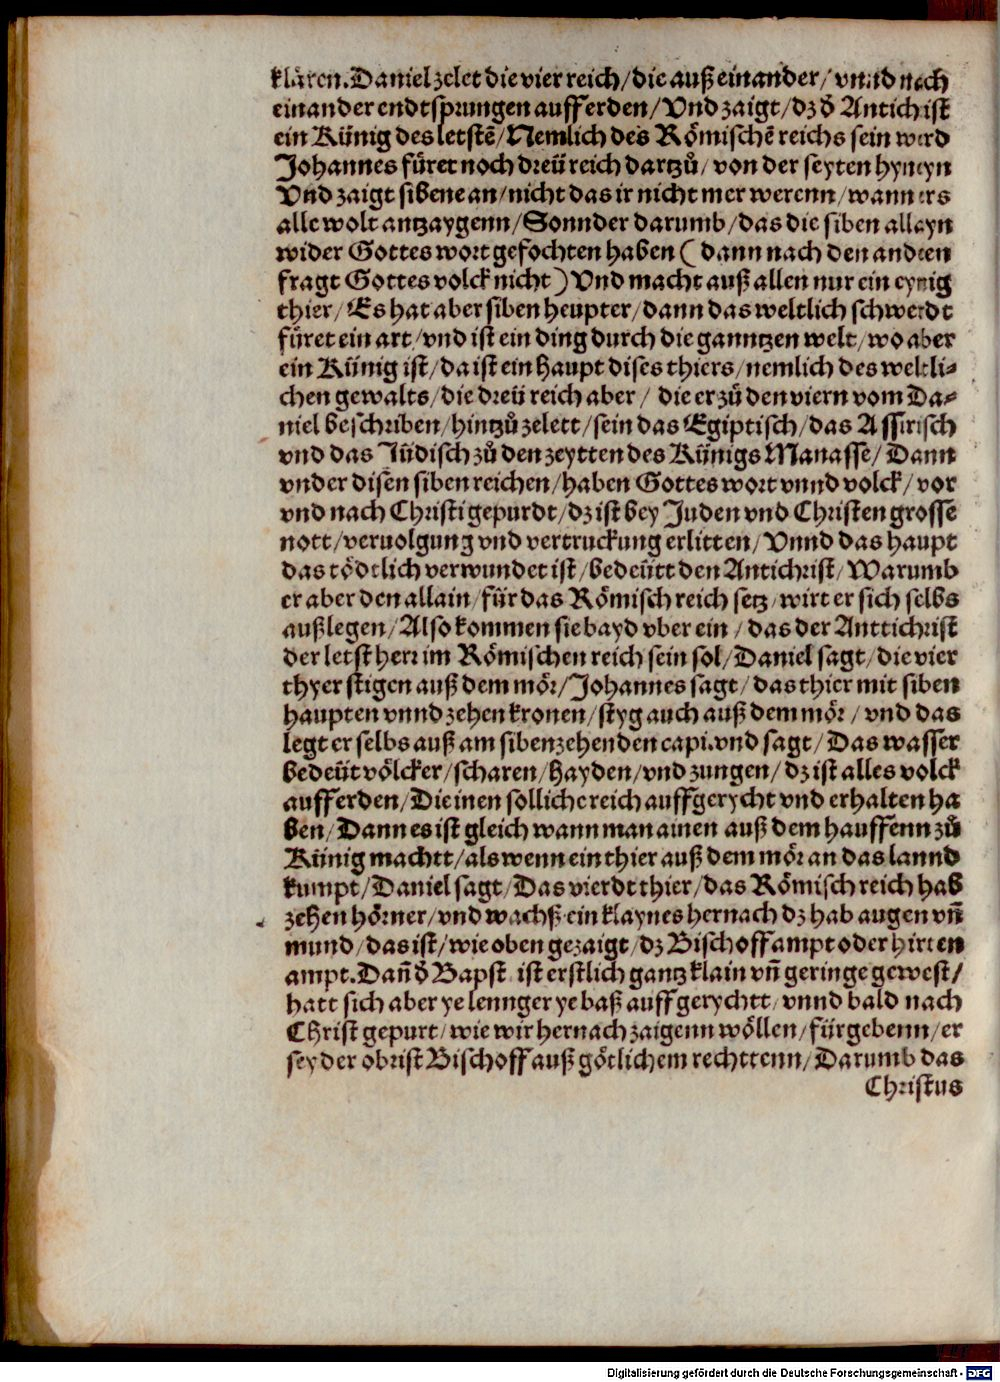 klären. Daniel zelet die vier reich/ die auß einander/ vnnd nach
einander endtsprungen auff erden/ Vnd zaigt/ dz d̓ Antichist
ein Künig des letstē/ Nemlich des Römischē reichs sein werd
Johannes füret noch dreü reich dartzů/ von der seyten hyneyn
Vnd zaigt sibene an/ nicht das ir nicht mer werenn/ wann ers
alle wolt antzaygenn/ Sonnder darumb/ das die siben allayn
wider Gottes wort gefochten haben ( dann nach den andren
fragt Gottes volck nicht ) Vnd macht auß allen nur ein eynig
thier/ Es hat aber siben heupter/ dann das weltlich schwerdt
füret ein art/ vnd ist ein ding durch die ganntzen welt/ wo aber
ein Künig ist/ da ist ein haupt dises thiers/ nemlich des weltli⸗
chen gewalts/ die dreü reich aber/ die er zů den viern vom Da⸗
niel beschriben/ hintzů zelett/ sein das Egiptisch/ das Assirisch
vnd das Jüdisch zů den zeytten des Künigs Manasse/ Dann
vnder disen siben reichen/ haben Gottes wort vnnd volck/ vor
vnd nach Christi gepurdt/ dz ist bey Juden vnd Christen grosse
nott/ veruolgung vnd vertruckung erlitten/ Vnnd das haupt
das tödtlich verwundet ist/ bedeütt den Antichrist/ Warumb
er aber den allain/ für das Römisch reich setz/ wirt er sich selbs
außlegen/ Also kommen sie bayd vber ein/ das der Anttichrist
der letst herr im Römischen reich sein sol/ Daniel sagt/ die vier
thyer stigen auß dem mör/ Johannes sagt/ das thier mit siben
haupten vnnd zehen kronen/ styg auch auß dem mör/ vnd das
legt er selbs auß am sibenzehenden capi. vnd sagt/ Das wasser
bedeüt völcker/ scharen/ hayden/ vnd zungen/ dz ist alles volck
auff erden/ Die inen solliche reich auffgerycht vnd erhalten ha
ben/ Dann es ist gleich wann man ainen auß dem hauffenn zů
Künig machtt/ als wenn ein thier auß dem mör an das lannd
kumpt/ Daniel sagt/ Das vierdt thier/ das Römisch reich hab
zehen hörner/ vnd wachß ein klaynes hernach dz hab augen vn̄
mund/ das ist/ wie oben gezaigt/ dz Bischoff ampt oder hirten
ampt. Dan̄ d̓ Bapst ist erstlich gantz klain vn̄ geringe gewest/
hatt sich aber ye lennger ye baß auff gerychtt/ vnnd bald nach
Christ gepurt/ wie wir hernach zaigenn wöllen/ fürgebenn/ er
sey der obrist Bischoff auß götlichem rechttenn/ Darumb das
Christus
Digitalisierung gefördert durch die Deutsche Forschungsgemeinschaft - DFG